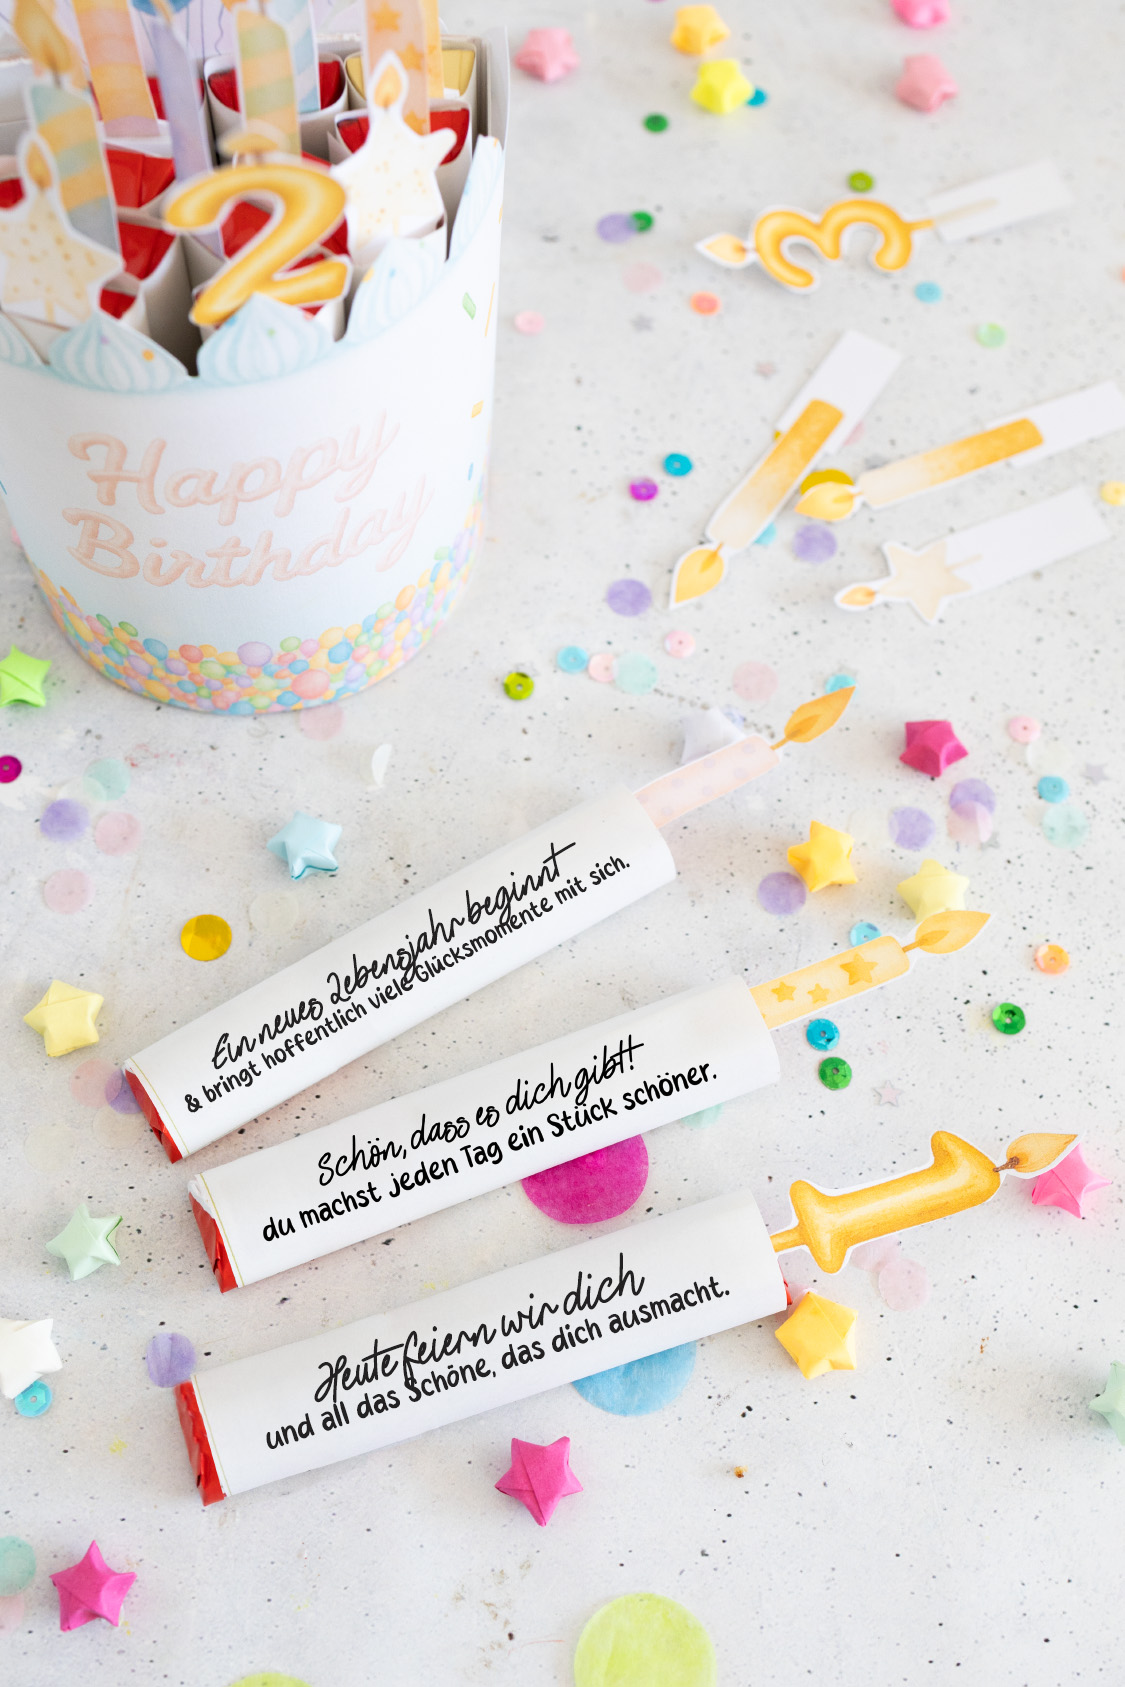 2
3
Happy
Birthday
Ein neues Lebensjahr beginnt
& bringt hoffentlich viele Glücksmomente mit sich.
Schön, dass es dich gibt!
du machst jeden Tag ein Stück schöner.
1
Heute feiern wir dich
und all das Schöne, das dich ausmacht.